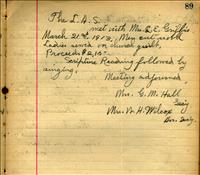 89
The L.A.S.
met with Mrs. E. E. Griffis
March 21st 1912. Men cut wood
Ladies sewed on church quilt.
Proceeds $2.15
Scripture Reading followed by
singing.
Meeting adjourned
Mrs. G. M. Hall
Secy
Mrs. W. H. Wilcox